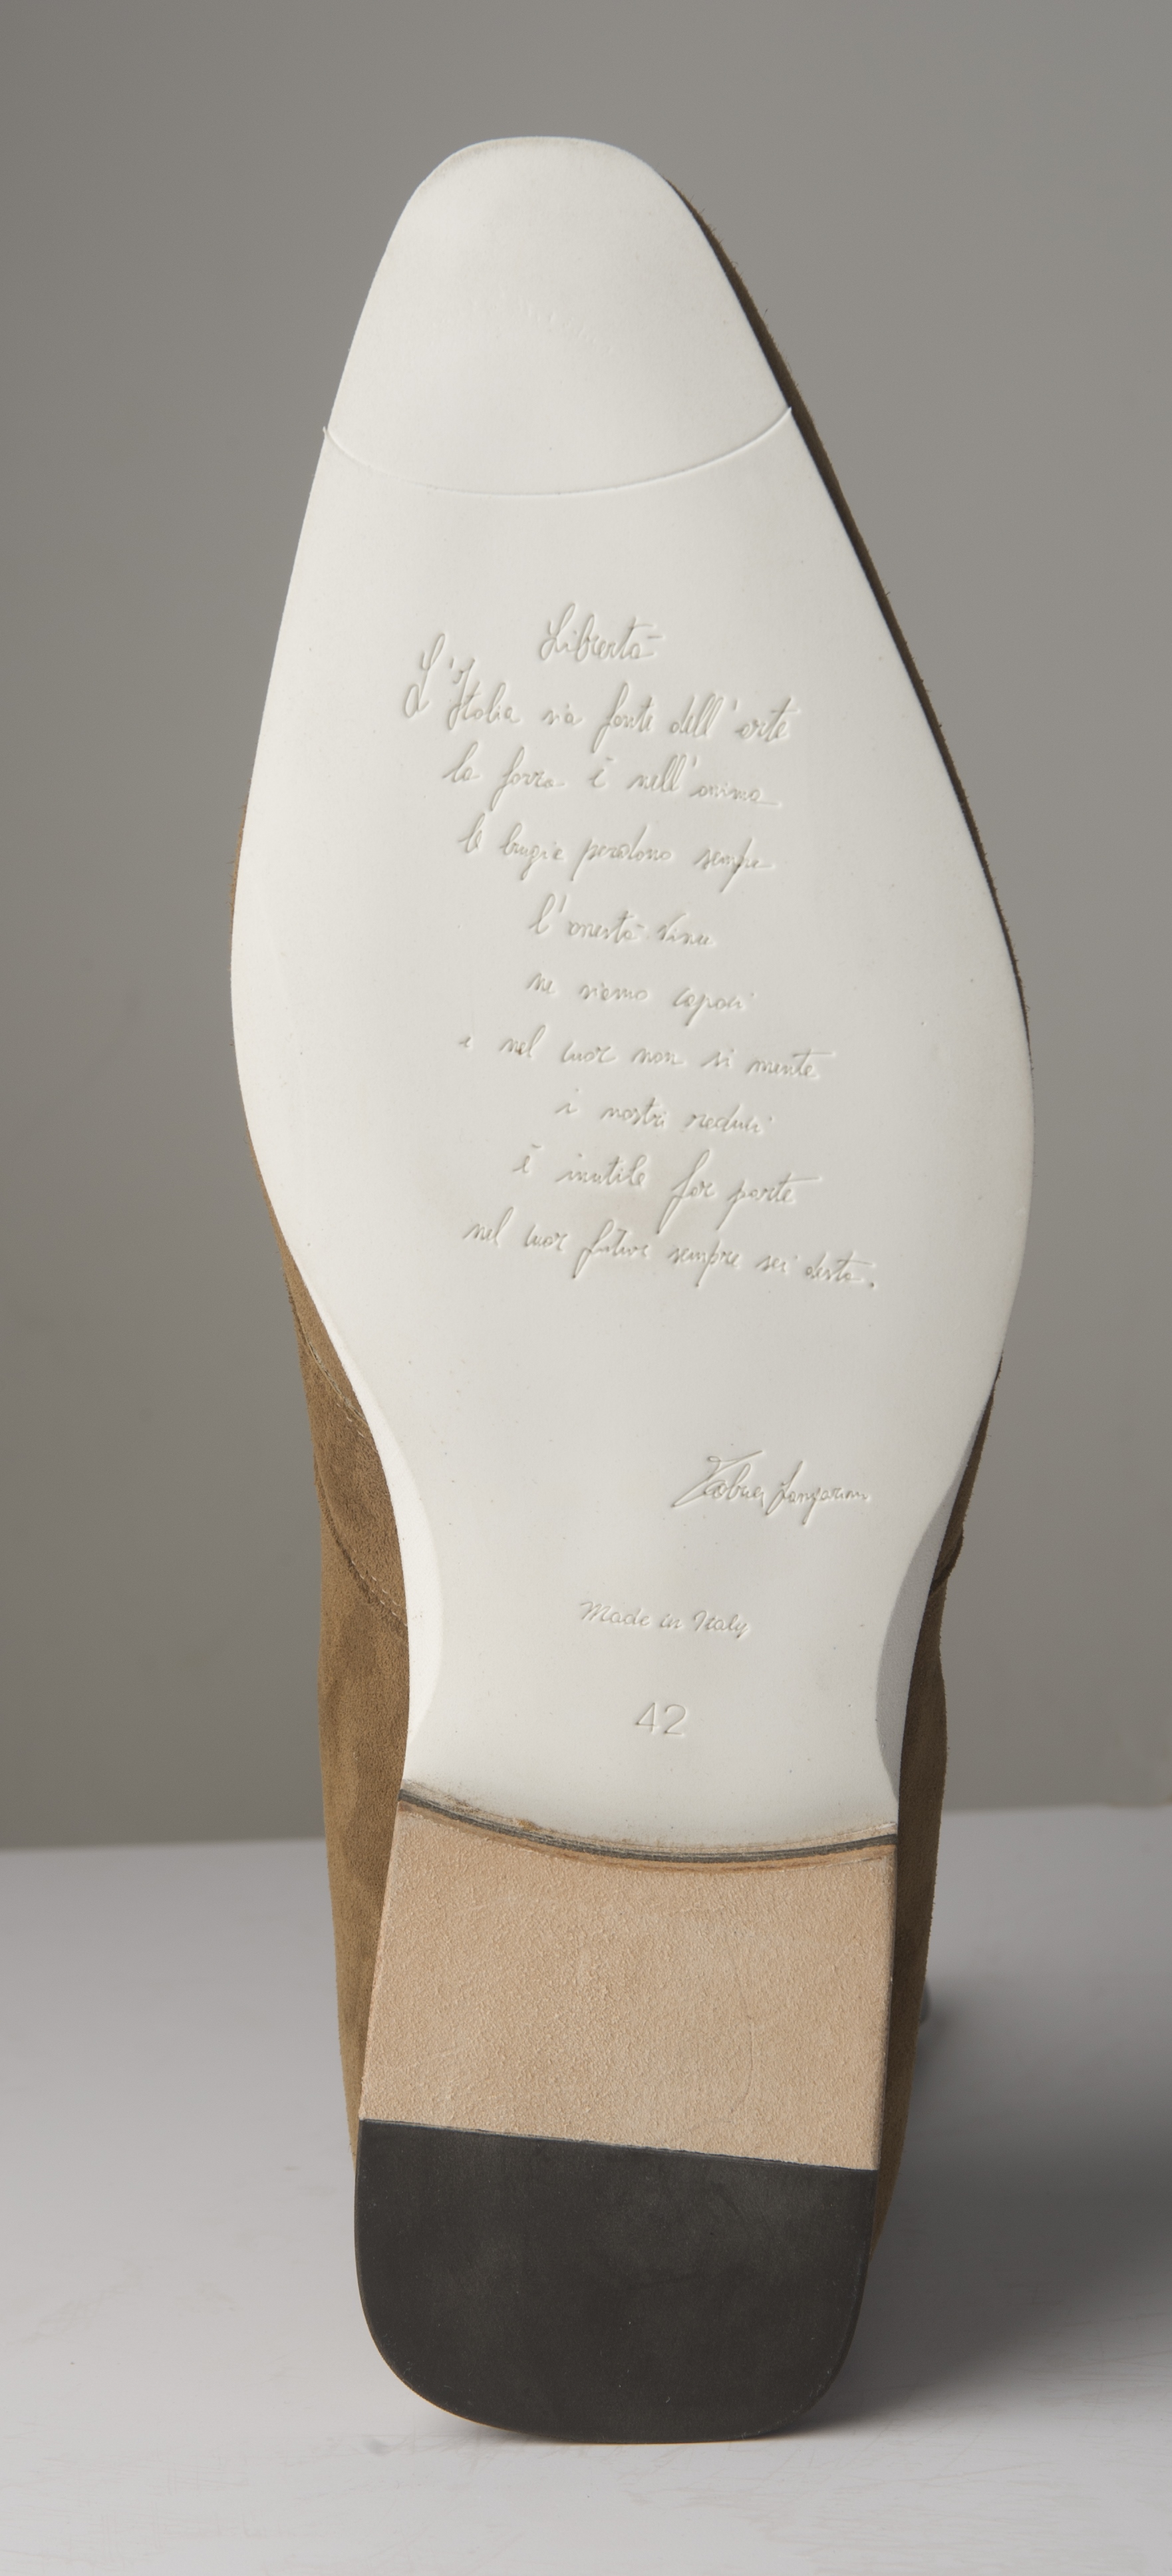 Libertà
L'Italia sia fonte dell'arte
la forza è nell'anima
le bugie perdono sempre
l'onestà vince
ne siamo capaci
e nel cuor non si mente
i nostri reduci
è inutile far parte
nel cuor futuro sempre sei desta.
Made in Italy
42